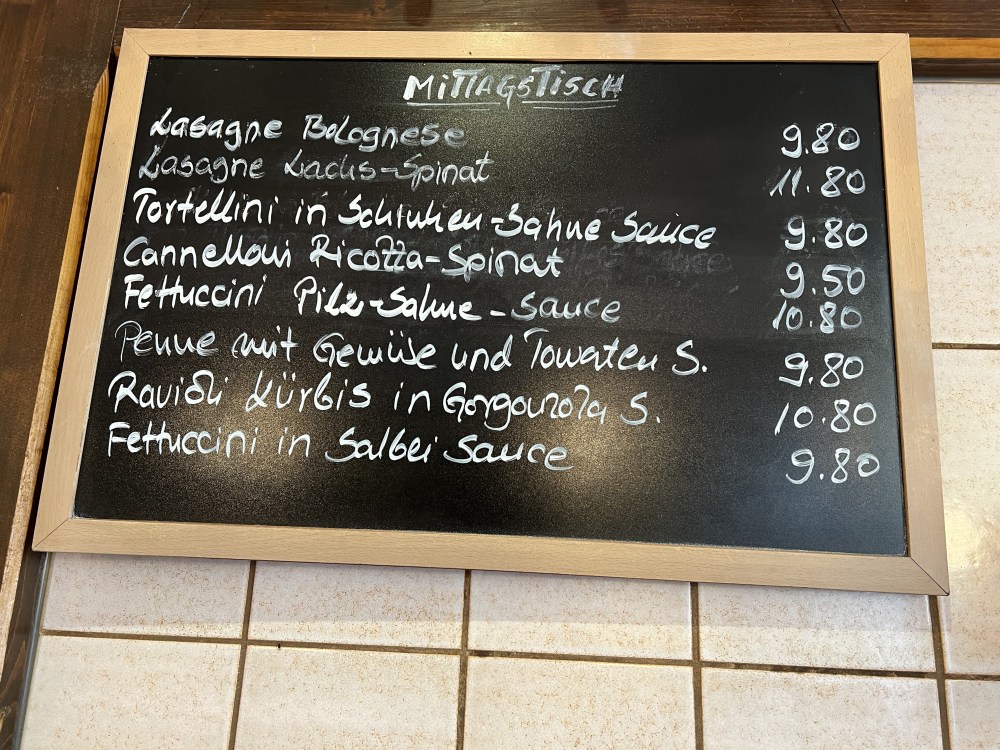 MITTAGSTISCH
Lasagne Bolognese 9.80
Lasagne Lachs-Spinat 11.80
Tortellini in Schinken-Sahne Sauce 9.80
Cannelloni Ricotta-Spinat 9.50
Fettuccini Pilz-Sahne-Sauce 10.80
Penne mit Gemüse und Tomaten S. 9.80
Ravioli Kürbis in Gorgonzola S. 10.80
Fettuccini in Salbei Sauce 9.80